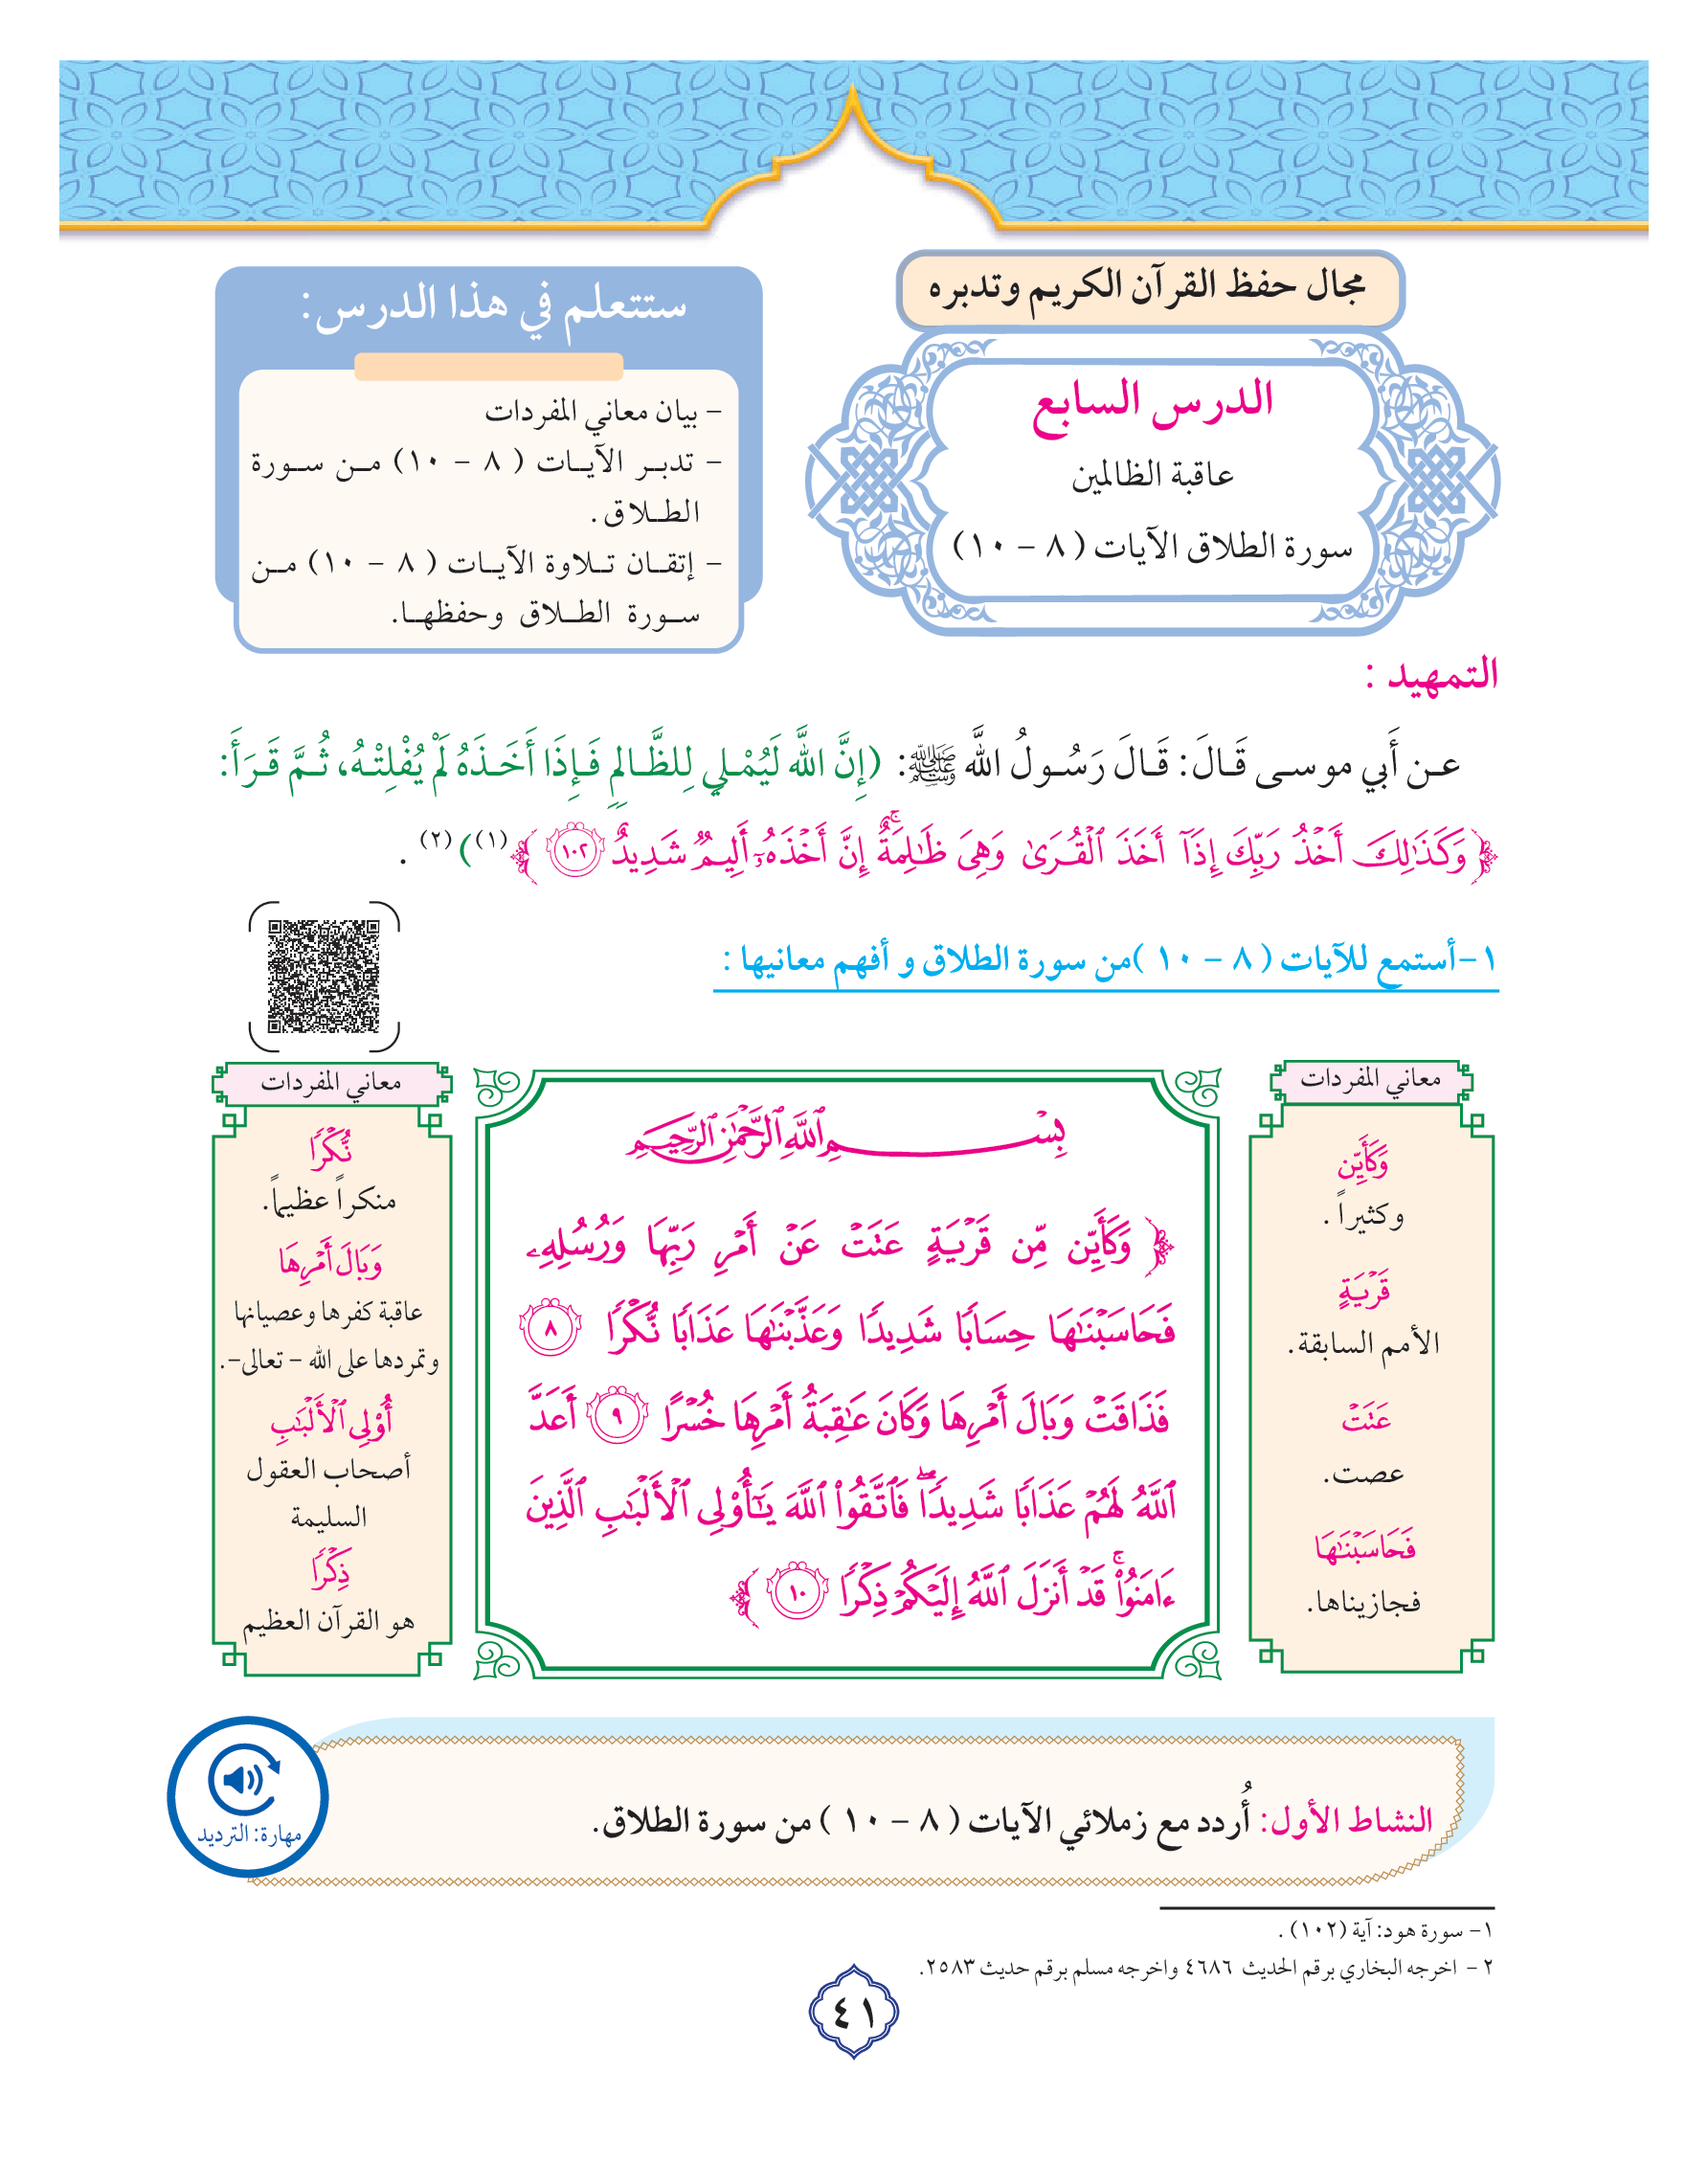 مجال حفظ القرآن الكريم وتدبره
الدرس السابع
عاقبة الظالمين
سورة الطلاق الآيات ( ٨ - ١٠ )
ستتعلم في هذا الدرس:
- بيان معاني المفردات
- تدبر الآيات ( ٨ - ١٠ ) من سورة
الطلاق.
- إتقان تلاوة الآيات ( ٨ - ١٠ ) من
سورة الطلاق وحفظها.
التمهيد :
عن أَبي موسى قَالَ: قَالَ رَسُولُ اللَّه ﷺ: (إِنَّ اللَّه لَيُمْلِي لِلظَّالِمِ فَإِذَا أَخَذَهُ لَمْ يُفْلِتْهُ، ثُمَّ قَرَأَ:
﴿ وَكَذَٰلِكَ أَخۡذُ رَبِّكَ إِذَآ أَخَذَ ٱلۡقُرَىٰ وَهِيَ ظَٰلِمَةٌۚ إِنَّ أَخۡذَهُۥٓ أَلِيمٞ شَدِيدٌ ١٠٢ ﴾(١)) (٢) .
١-أستمع للآيات ( ٨ - ١٠ )من سورة الطلاق و أفهم معانيها :
معاني المفردات
وَكَأَيِّن
وكثيراً .
قَرۡيَةٍ
الأمم السابقة.
عَتَتۡ
عصت.
فَحَاسَبۡنَٰهَا
فجازيناها.
بِسۡمِ ٱللَّهِ ٱلرَّحۡمَٰنِ ٱلرَّحِيمِ
﴿ وَكَأَيِّن مِّن قَرۡيَةٍ عَتَتۡ عَنۡ أَمۡرِ رَبِّهَا وَرُسُلِهِۦ
فَحَاسَبۡنَٰهَا حِسَابٗا شَدِيدٗا وَعَذَّبۡنَٰهَا عَذَابٗا نُّكۡرٗا ٨
فَذَاقَتۡ وَبَالَ أَمۡرِهَا وَكَانَ عَٰقِبَةُ أَمۡرِهَا خُسۡرًا ٩ أَعَدَّ
ٱللَّهُ لَهُمۡ عَذَابٗا شَدِيدٗاۖ فَٱتَّقُواْ ٱللَّهَ يَٰٓأُوْلِي ٱلۡأَلۡبَٰبِ ٱلَّذِينَ
ءَامَنُواْۚ قَدۡ أَنزَلَ ٱللَّهُ إِلَيۡكُمۡ ذِكۡرٗا ١٠ ﴾
معاني المفردات
نُّكۡرٗا
منكراً عظيماً.
وَبَالَ أَمۡرِهَا
عاقبة كفرها وعصيانها
وتمردها على الله - تعالى-.
أُوْلِي ٱلۡأَلۡبَٰبِ
أصحاب العقول
السليمة
ذِكۡرٗا
هو القرآن العظيم
النشاط الأول: أُردد مع زملائي الآيات ( ٨ - ١٠ ) من سورة الطلاق.
مهارة: الترديد
١- سورة هود: آية (١٠٢) .
٢ - اخرجه البخاري برقم الحديث ٤٦٨٦ واخرجه مسلم برقم حديث ٢٥٨٣.
٤١